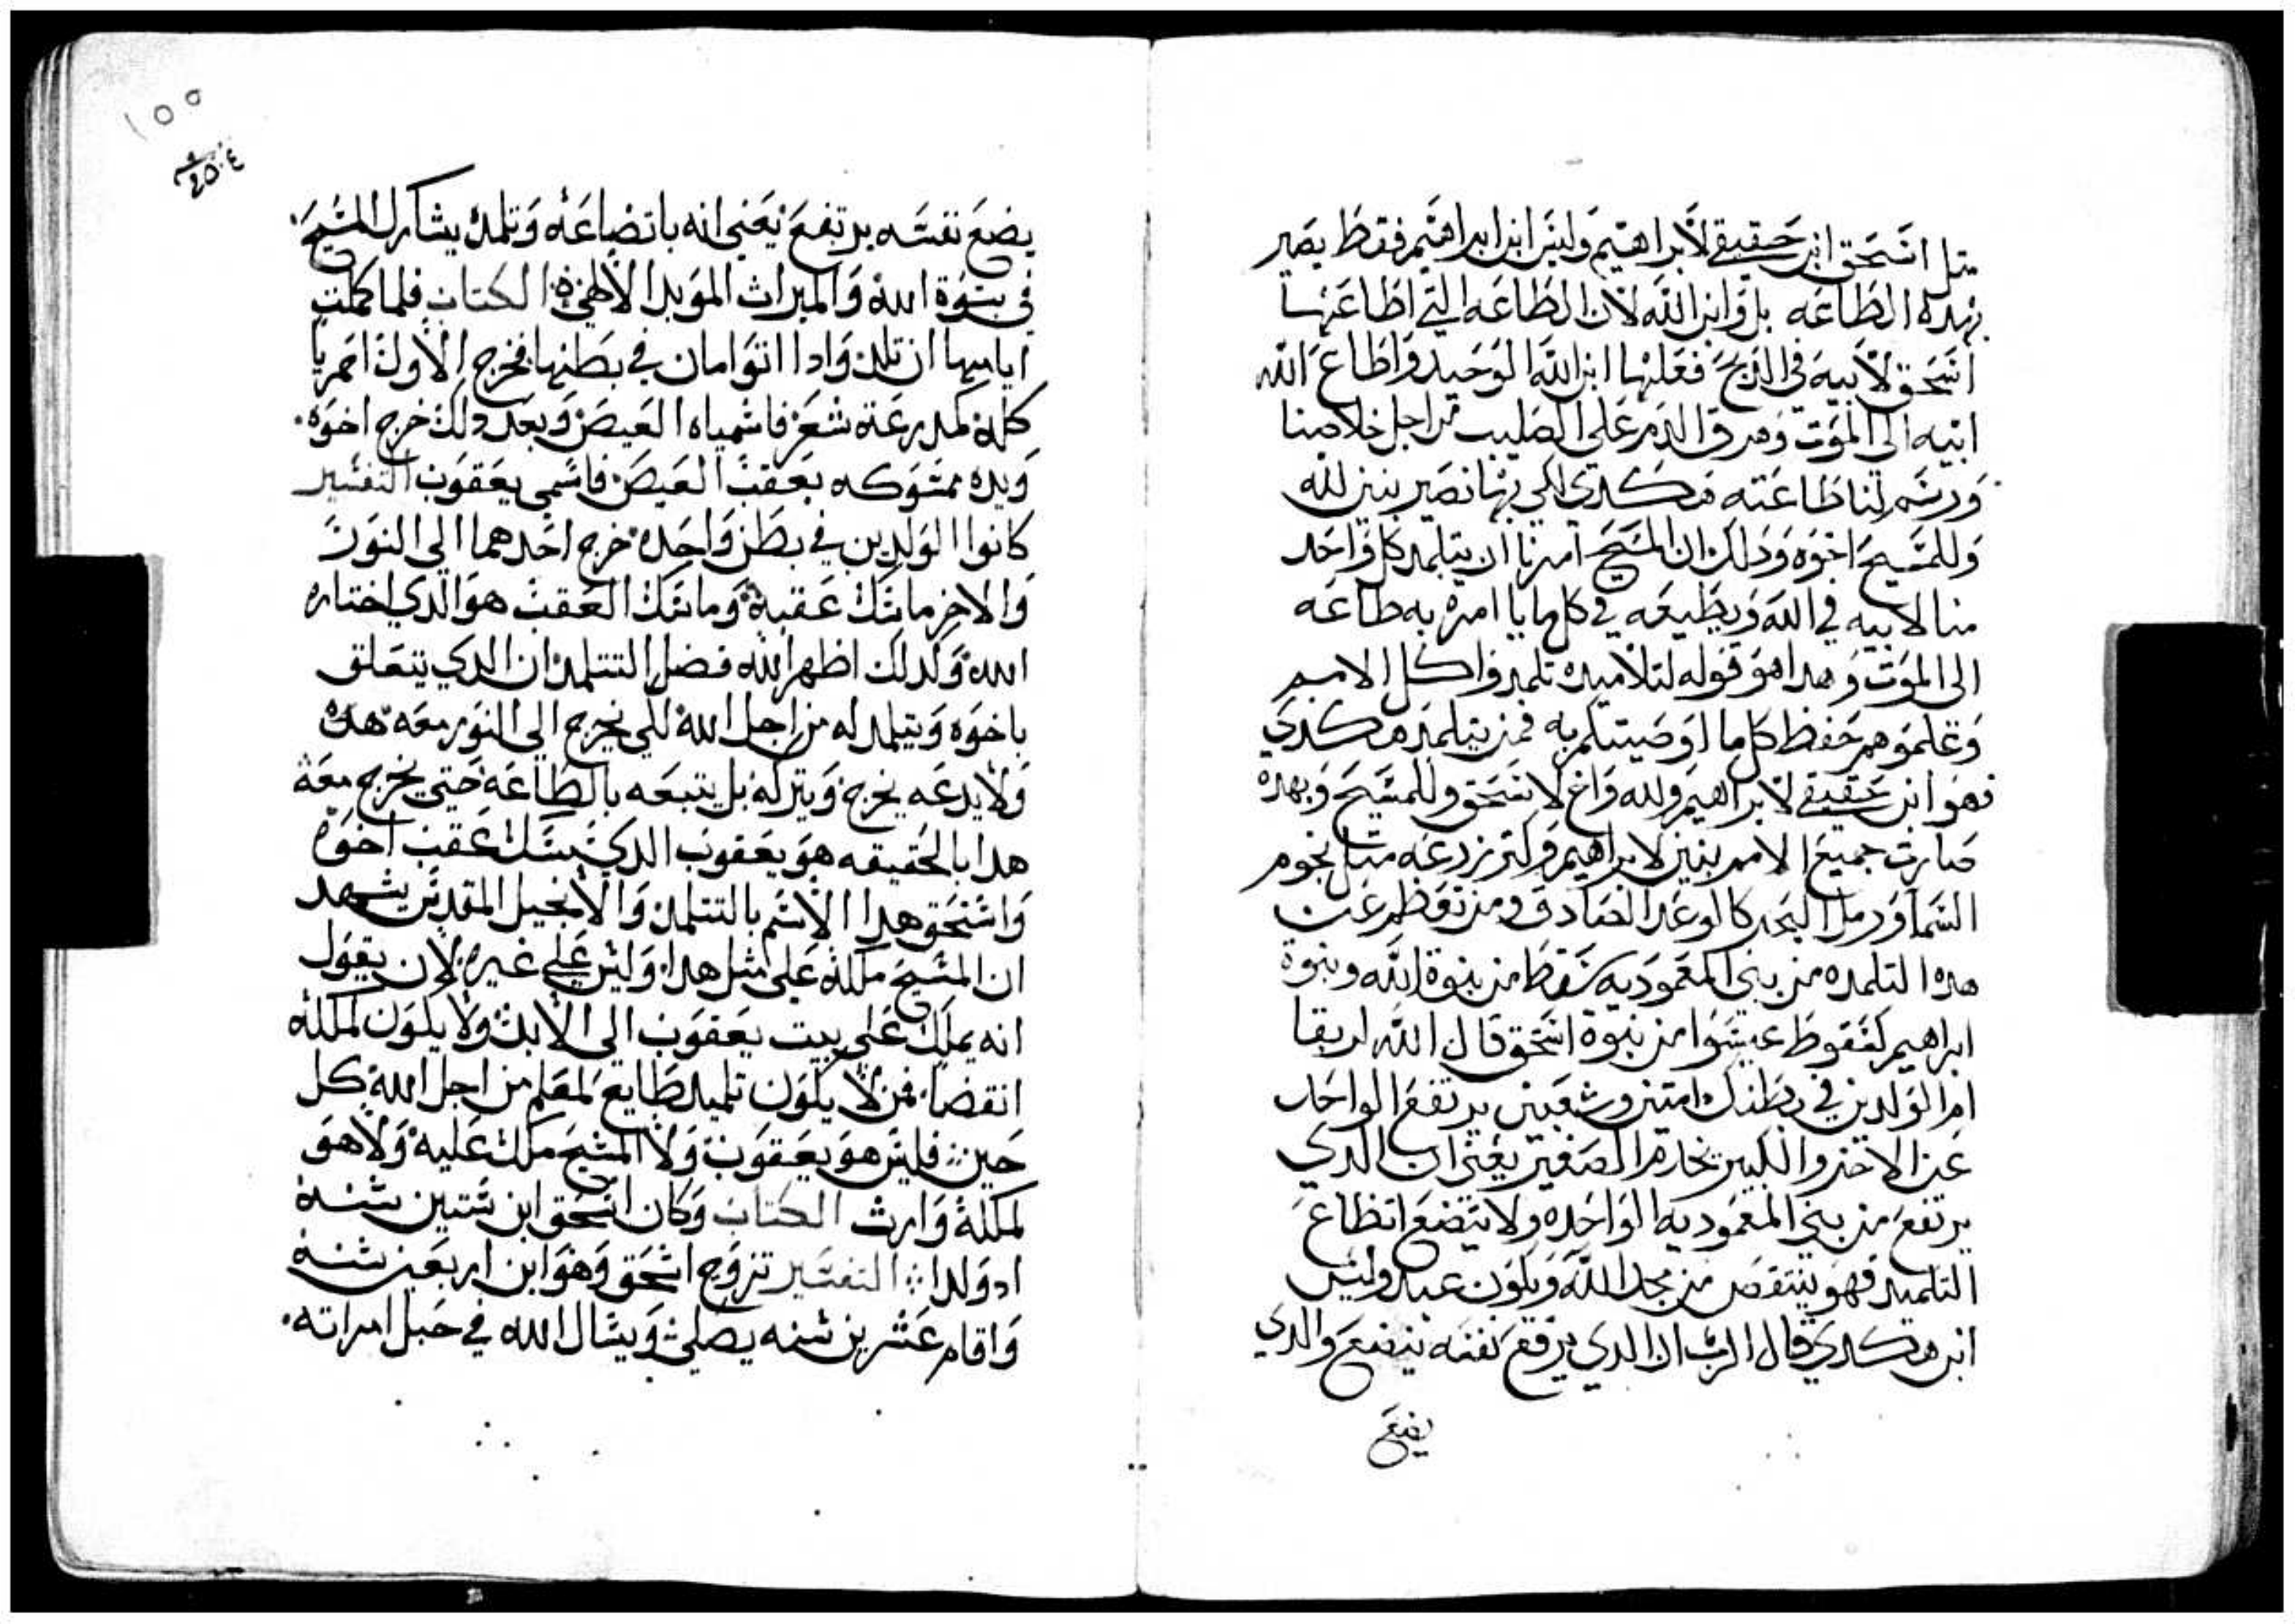 مثل اسحق ابن حقيقي لابراهيم وليس ابن ابراهيم فقط يصير
بهده الطاعه بل وابن الله لان الطاعه التي اطاعها
اسحق لابيه في الدبح فعلها ابن الله الوحيد واطاع الله
ابيه الي الموت وهرق الدم علي الصليب من اجل خلاصنا
ورسم لنا طاعته هكدي لكي بها نصير بنين لله
وللمسيح اخوه ودلك ان المسيح امرنا ان يتلمد كل واحد
منا لابيه في الله ويطيعه في كلما يامره به طاعه
الي الموت وهدا هو قوله لتلاميده تلمدوا كل الامم
وعلموهم حفظ كل ما اوصيتكم به فمن يتلمد هكدي
فهو ابن حقيقي لابراهيم ولله واخ لاسحق وللمسيح وبهده
صارت جميع الامم بنين لابراهيم وكتر زرعه مثل نجوم
السما ورمل البحر كالوعد الصادق ومن توظم عن
هده التلمده من بني المعموديه سقط من بنوة الله وبنوة
ابراهيم كسقوط عيسوا من بنوة اسحق قال الله لربقا
ام الولدين في بطنك امتين وشعبين يرتفع الواحد
عن الاخر والكبير يخدم الصغير يعني ان الدي
يرتفع من بني المعموديه الواحده ولا يتضع اتظاع
التلميد فهو ينتقص من مجد الله ويكون عبد وليس
ابن هكدي قال الرب ان الدي يرفع نفسه يتضع والدي
يضع
١٥٥
يضع نفسه يرتفع يعني انه باتضاعه وتلمده يشارك المسيح
في بنوة الله والميراث الموبد الالهي الكتاب فلما كملت
ايامها ان تلد وادا اتوامان في بطنها فخرج الاول احمريا
كله كمدرعة شعر فاسمياه العيص وبعد دلك خرج اخوه
ويده ممسوكه بعقب العيص فاسمي يعقوب التفسير
كانوا الولدين في بطن واحده خرج احدهما الي النور
والاخر ماسك عقبه وماسك العقب هو الدي اختاره
الله ولدلك اظهر الله فضل التتلمد ان الدي يتعلق
باخوه ويتلمد له من اجل الله لكي يخرج الي النور معه هده
ولا يدعه يخرج ويتركه بل يتبعه بالطاعه حتي يخرج معه
هدا بالحقيقه هو يعقوب الدي يمسك عقب اخوه
واستحق هدا الاسم بالتتلمد والانجيل المقدس يشهد
ان المسيح ملكه علي مثل هدا وليس علي غيره لان يقول
انه يملك علي بيت يعقوب الي الابد ولا يكون لملكه
انقضا فمن لا يكون تلميد طايع لمعلم من اجل الله كل
حين فليس هو يعقوب ولا المسيح ملك عليه ولا هو
لملكه وارث الكتاب وكان اسحق ابن ستين سنه
ادولدا التفسير تزوج اسحق وهو ابن اربعين سنه
واقام عشرين سنه يصلي ويسال الله في حبل امراته